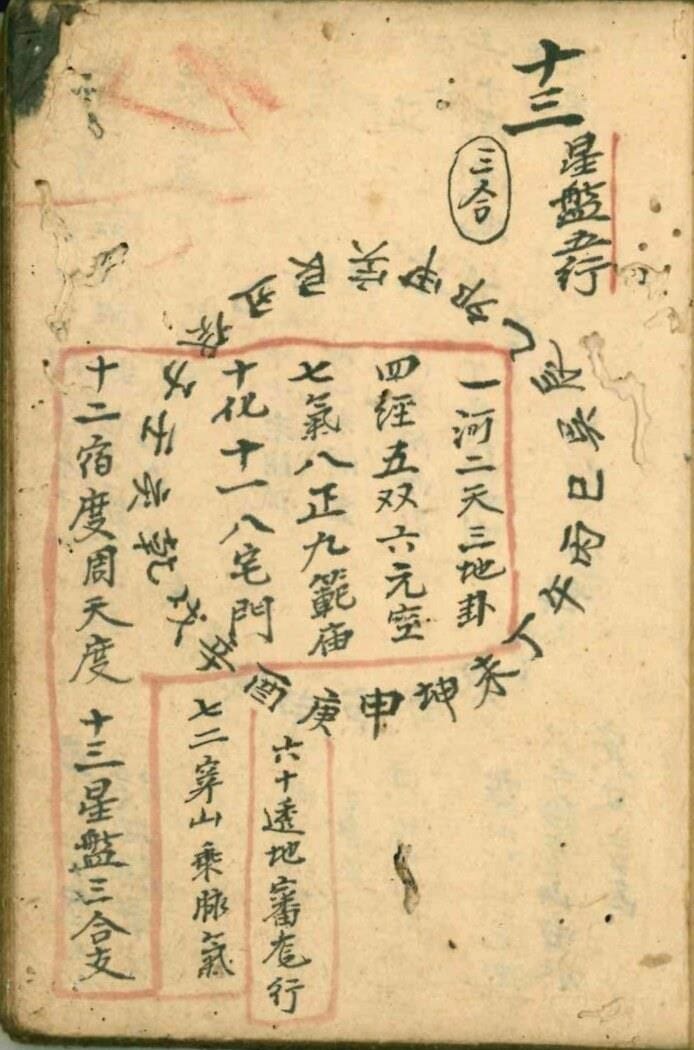 十三
星盤五行
三合
一河二天三地卦
四經五双六元空
七氣八正九範庙
十化十一八宅門
十二宿度周天度 十三星盤三合支
七二穿山乘脉氣
六十透地審竜行
壬子癸丑艮寅甲卯乙辰巽巳丙午丁未坤申庚酉辛戌乾亥